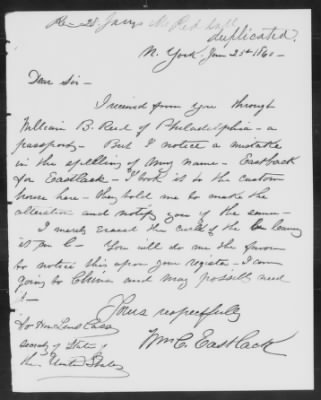 duplicated.
N. York. Jan 25th 1860 -
Dear Sir -
I received from you through
William B. Reed of Philadelphia - a
passport - But I notice a mistake
in the spelling of my name - Eastback
for Eastlack - I took it to the custom
house here - they told me to make the
alteration and notify you of the same -
I merely erased the curl of the b leaving
it an l - You will do me the favor
to notice this upon your register - I am
going to China and may possibly need
it -
Yours respectfully
Wm C. Eastlack
To Hon Lewis Cass
secrety of State of
the United States